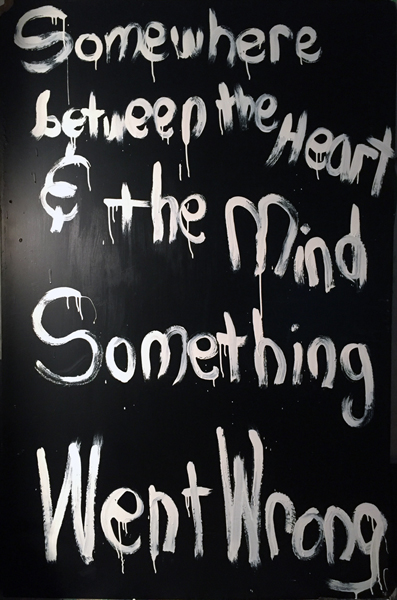 Somewhere
between the Heart
& the Mind
Something
Went Wrong